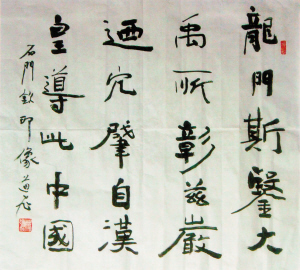 龍門斯鑿大
禹所彰茲巖
迺穴肇自漢
皇導此中國
石門 印像